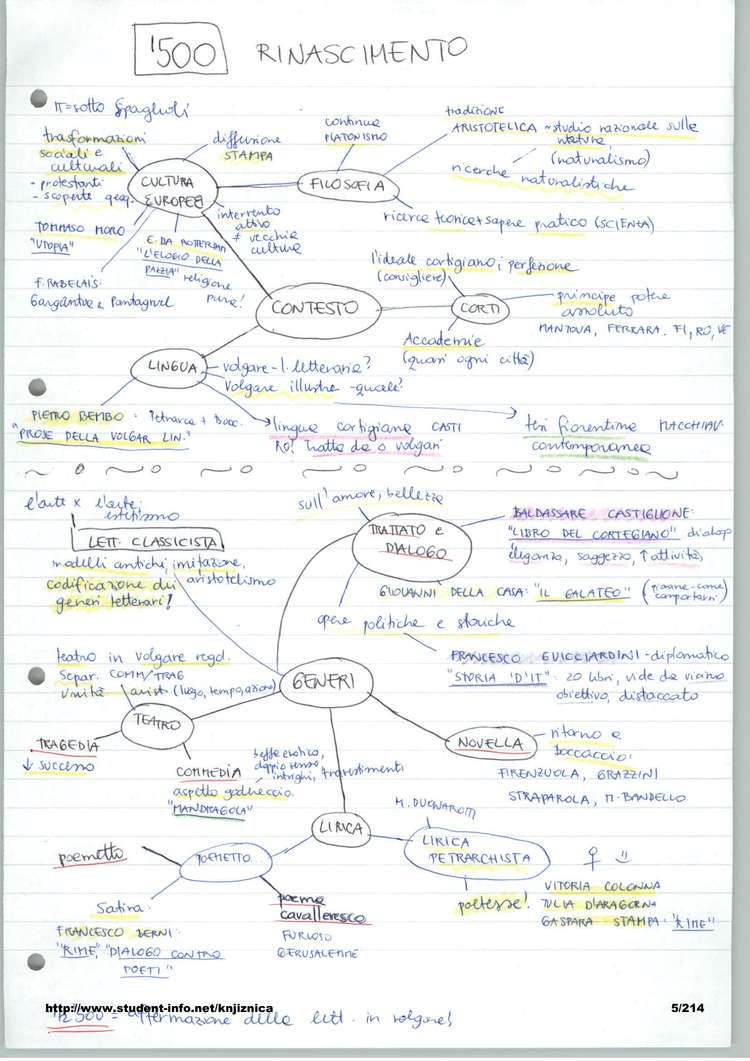 '500 RINASCIMENTO
IT = sotto Spagnoli
trasformazioni
sociali e
culturali
- protestanti
- scoperte geog.
diffusione
STAMPA
continua
PLATONISMO
tradizione
ARISTOTELICA ~ studio razionale sulla
natura
(naturalismo)
ricerche naturalistiche
CULTURA
EUROPEA
FILOSOFIA
ricerca teorica + sapere pratico (SCIENZA)
TOMMASO MORO
"UTOPIA"
E. DA ROTTERDAM
"L'ELOGIO DELLA
PAZZIA" religione
pura!
intervento
attivo
≠ vecchia
cultura
F. RABELAIS:
Gargantua e Pantagruel
l'ideale cortigiano, perfezione
(consigliere)
CONTESTO
CORTI
principe potere
assoluto
MANTOVA, FERRARA, FI, RO, VE
Accademie
(quasi ogni città)
LINGUA
volgare - l. letteraria?
Volgare illustre - quale?
PIETRO BEMBO = Petrarca + Bocc.
"PROSE DELLA VOLGAR LIN."
lingua cortigiana CASTI
NO! Tratta da o volgari
tesi fiorentina MACCHIAV.
contemporanea
l'arte x l'arte
estetismo
LETT. CLASSICISTA
modelli antichi, imitazione,
aristotelismo
codificazione dei
generi letterari!
sull'amore, bellezza
TRATTATO e
DIALOGO
BALDASSARE CASTIGLIONE:
"LIBRO DEL CORTEGIANO" dialogo
eleganza, saggezza, ↑ attività
GIOVANNI DELLA CASA: "IL GALATEO" (giovane - come comportarsi)
opere politiche e storiche
FRANCESCO GUICCIARDINI - diplomatico
"STORIA D'IT" - 20 libri, vide da vicino
obiettivo, distaccato
teatro in volgare regol.
Separ. COMM/TRAG
Unità arist. (luogo, tempo, azione)
GENERI
TEATRO
TRAGEDIA
↓ successo
COMMEDIA
aspetto godereccio
"MANDRAGOLA"
beffe erotico,
doppio senso,
intrighi, travestimenti
NOVELLA
ritorno a
Boccaccio!
FIRENZUOLA, GRAZZINI
STRAPAROLA, M. BANDELLO
LIRICA
poemetto
POEMETTO
LIRICA
PETRARCHISTA
♀
poetesse!
VITORIA COLONNA
TULIA D'ARAGONA
GASPARA STAMPA: "RIME"
Satira:
FRANCESCO BERNI:
"RIME", "DIALOGO CONTRO
POETI"
poema
cavalleresco
FURIOSO
GERUSALEMME
http://www.student-info.net/knjiznica
5/214
'500 = affermazione della lett. in volgare!